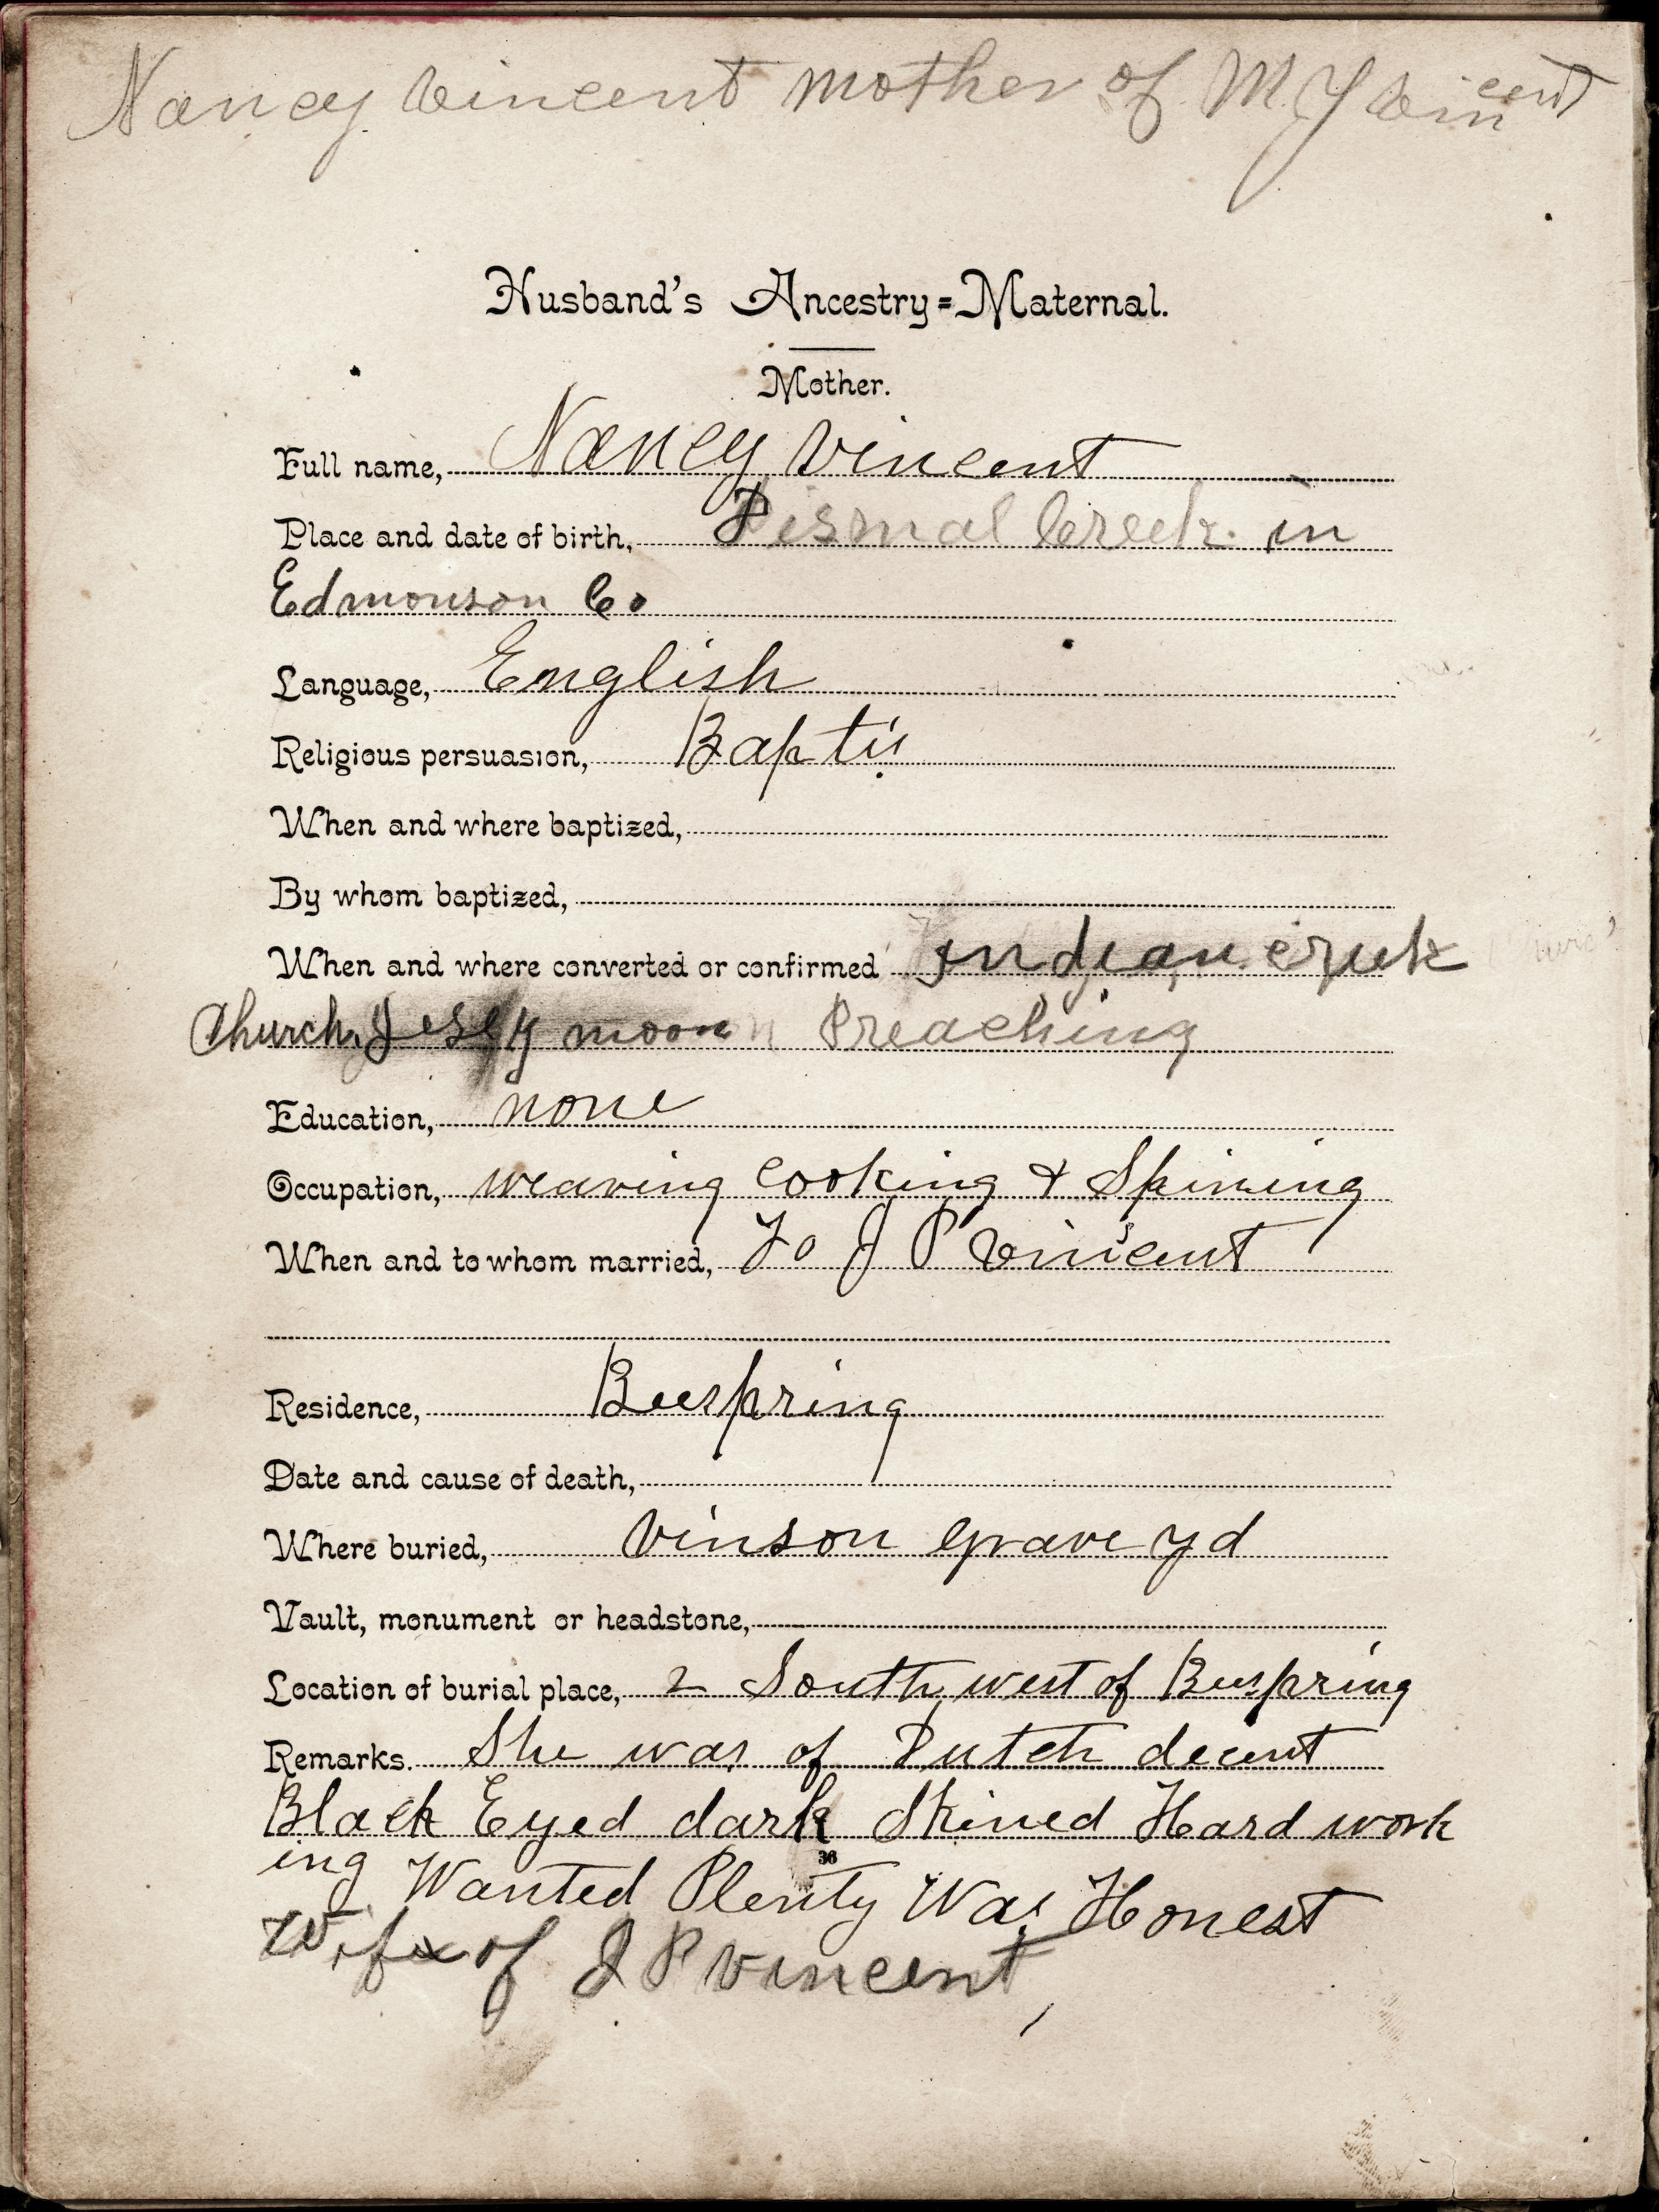 Nancy Vincent mother of M. J Vincent
Husband's Ancestry=Maternal.
Mother.
Full name, Nancy Vincent
Place and date of birth, Dismal Creek in
Edmonson Co
Language, English
Religious persuasion, Baptis
When and where baptized,
By whom baptized,
When and where converted or confirmed Indian creek
Church. Jessy moon Preaching
Education, none
Occupation, weaving cooking & Spining
When and to whom married, To J P Vincent
Residence, Beespring
Date and cause of death,
Where buried, Vinson Grave yd
Vault, monument or headstone,
Location of burial place, 2 South west of Beespring
Remarks. She was of Dutch decent
Black Eyed dark Skined Hard work
36
ing Wanted Plenty Was Honest
Wife of J P Vincent